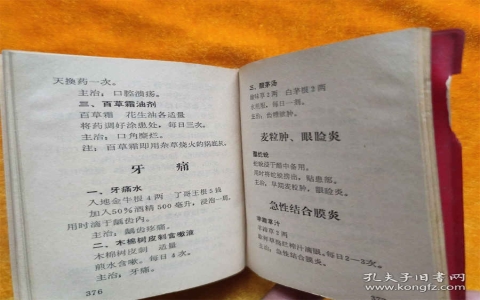 天换药一次。
主治：口腔溃疡。
三、百草霜油剂
百草霜 花生油各适量
将药调好涂患处，每日三次。
主治：口角糜烂。
注：百草霜即用杂草烧火的锅底灰。
牙 痛
一、牙痛水
入地金牛根4两 丁哥王根5钱
加入50%酒精500毫升，浸泡一周，
用时滴于龋齿内。
主治：龋齿疼痛。
二、木棉树皮刺含嗽液
木棉树皮刺 适量
煎水含嗽。每日4次。
主治：牙痛。
376
2两 白茅根2两
每日一剂。
麦粒肿、眼睑炎
主治：早期麦粒肿、眼睑炎。
急性结合膜炎
每日2—3次。
主治：急性结合膜炎。
孔夫子旧书网
www.kongfz.com